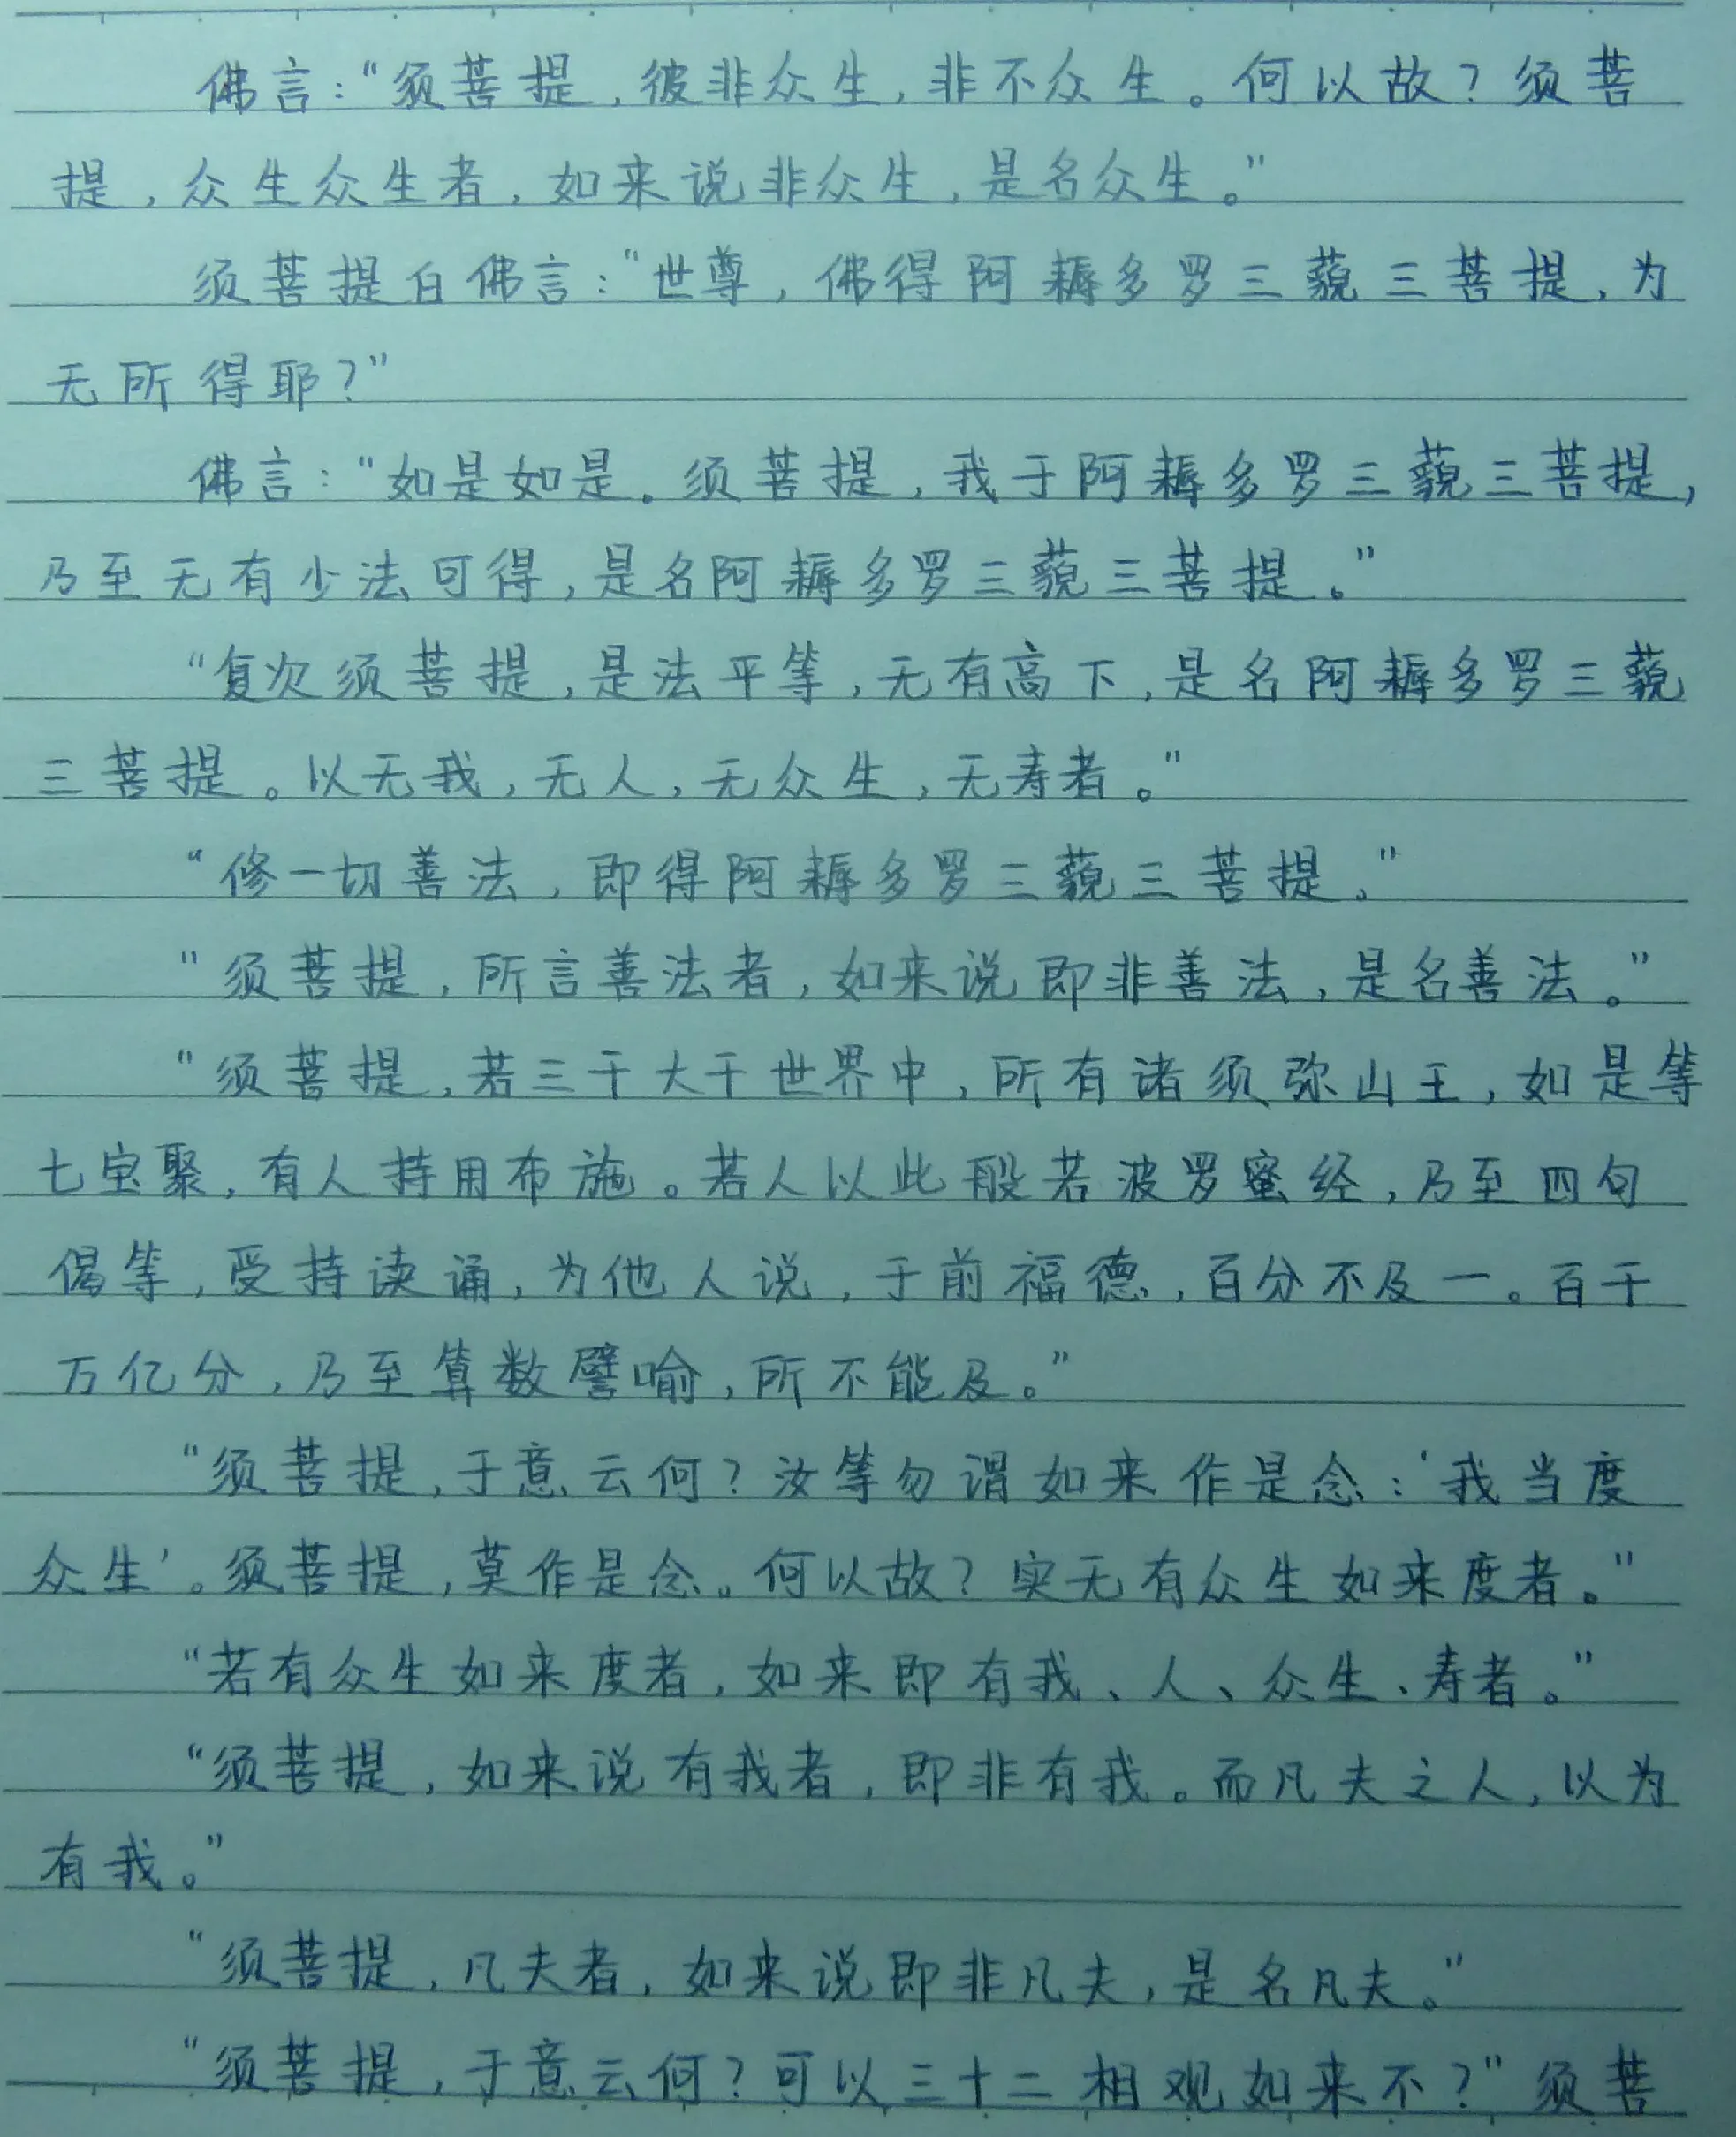 佛言：“须菩提，彼非众生，非不众生。何以故？须菩
提，众生众生者，如来说非众生，是名众生。”
须菩提白佛言：“世尊，佛得阿耨多罗三藐三菩提，为
无所得耶？”
佛言：“如是如是。须菩提，我于阿耨多罗三藐三菩提，
乃至无有少法可得，是名阿耨多罗三藐三菩提。”
“复次须菩提，是法平等，无有高下，是名阿耨多罗三藐
三菩提。以无我，无人，无众生，无寿者。”
“修一切善法，即得阿耨多罗三藐三菩提。”
“须菩提，所言善法者，如来说即非善法，是名善法。”
“须菩提，若三千大千世界中，所有诸须弥山王，如是等
七宝聚，有人持用布施。若人以此般若波罗蜜经，乃至四句
偈等，受持读诵，为他人说，于前福德，百分不及一。百千
万亿分，乃至算数譬喻，所不能及。”
“须菩提，于意云何？汝等勿谓如来作是念：‘我当度
众生’。须菩提，莫作是念。何以故？实无有众生如来度者。”
“若有众生如来度者，如来即有我、人、众生、寿者。”
“须菩提，如来说有我者，即非有我。而凡夫之人，以为
有我。”
“须菩提，凡夫者，如来说即非凡夫，是名凡夫。”
“须菩提，于意云何？可以三十二相观如来不？”须菩